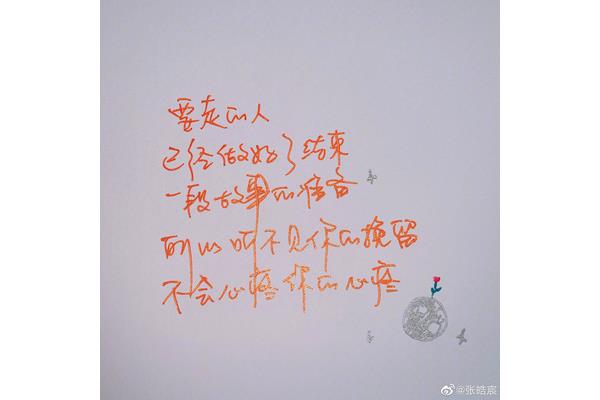 要走的人
已经做好了结束
一段故事的准备
所以听不见你的挽留
不会心疼你的心疼
@张皓宸